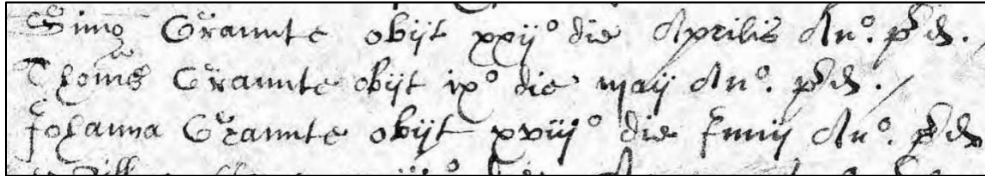 Simo Grannte obijt xxijo die Aprilis Ano. pd. /
Thoms Grannte obijt ixo die maij Ano. pd. /
Johanna Grannte obijt xviijo die Junij Ano. pd